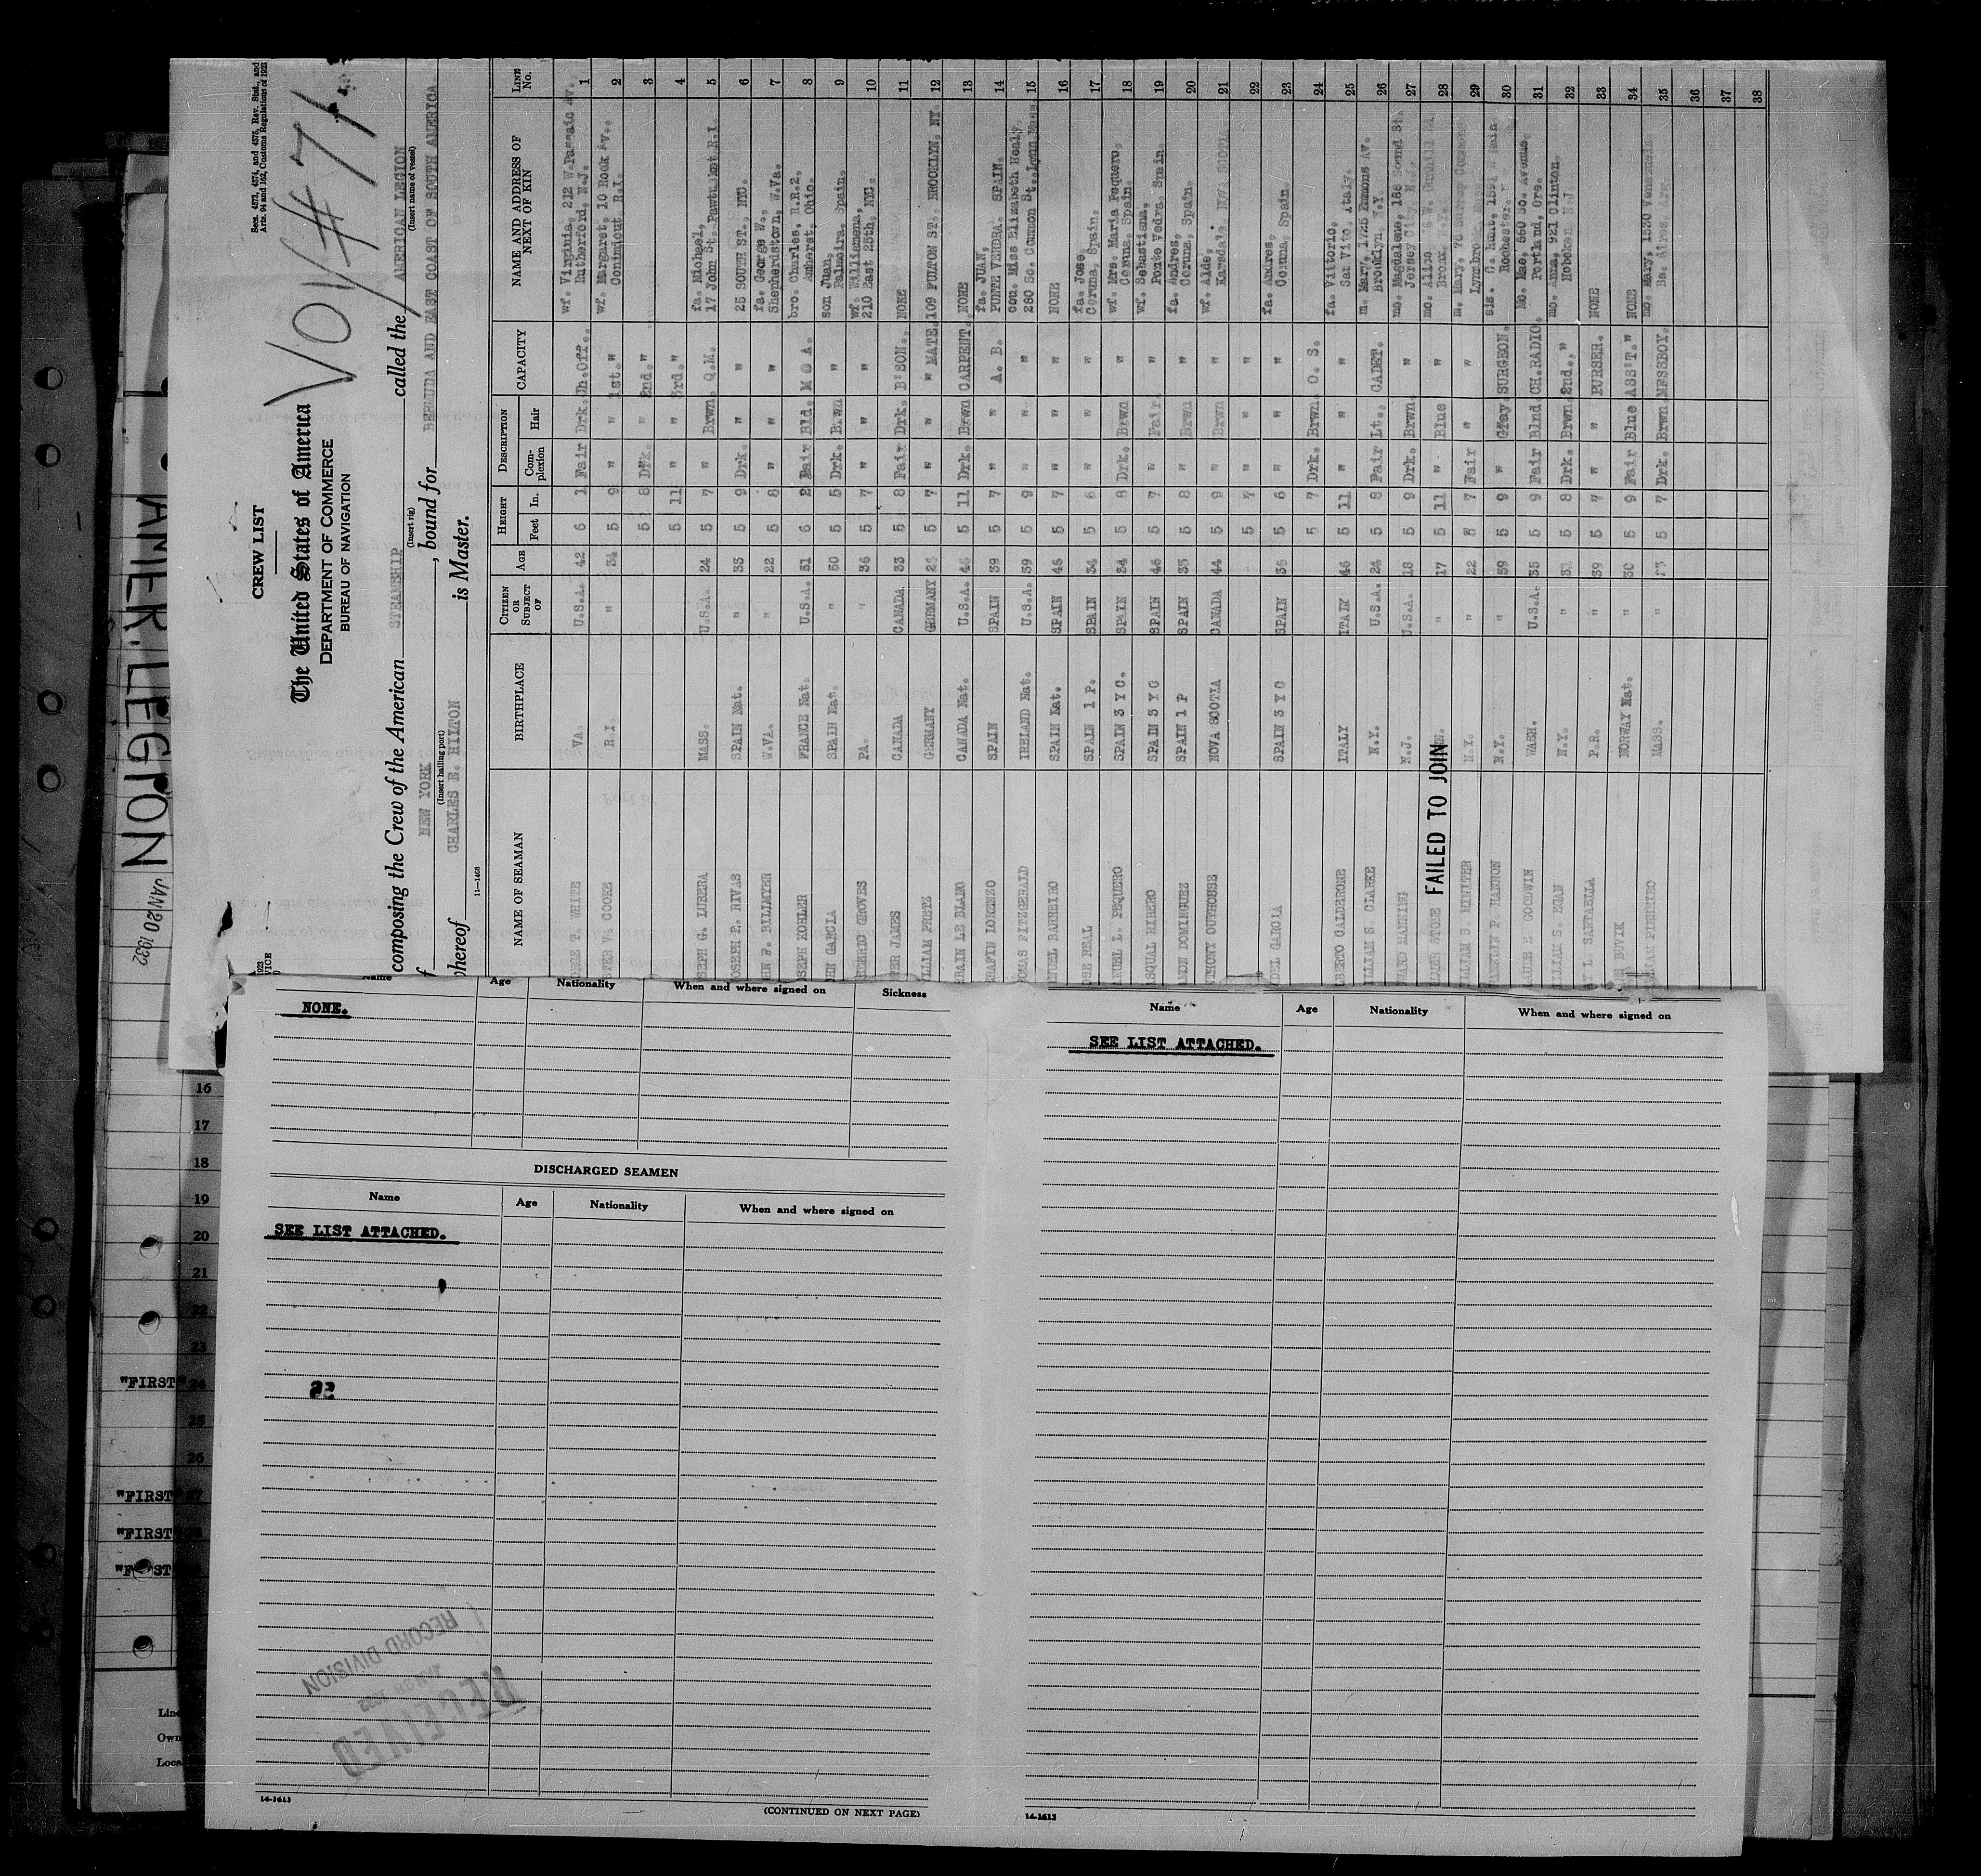 AMER. LEGION
JAN 20 1932
CREW LIST
Secs. 4573, 4574, and 4575, Rev. Stat., and
Arts. 94 and 162, Customs Regulations of 1923
VOY #71
The United States of America
DEPARTMENT OF COMMERCE
BUREAU OF NAVIGATION
composing the Crew of the American STEAMSHIP called the AMERICAN LEGION
(Insert rig) (Insert name of vessel)
NEW YORK, bound for BERMUDA AND EAST COAST OF SOUTH AMERICA.
(Insert hailing port)
hereof CHARLES E. HILTON is Master.
11—1468
NAME OF SEAMAN BIRTHPLACE CITIZEN OR SUBJECT OF AGE HEIGHT Feet In. DESCRIPTION Complexion Hair CAPACITY NAME AND ADDRESS OF NEXT OF KIN LINE No.
T. WHITE VA. U.S.A. 42 6 1 Fair Drk. Ch.Off. wf. Virginia, 212 W.Passaic Av. Rutherford, N.J. 1
V. COOKE R.I. " 34 5 9 " " 1st. " wf. Margaret, 10 Rock Av., Conimicut R.I. 2
5 8 Drk. " 2nd. " 3
5 11 " " 3rd. " 4
SEPH G. LUBERA MASS. U.S.A. 24 5 7 " Brwn. Q.M. fa. Michael, 17 John St. Pawtucket R.I. 5
OSEPH P. RIVAS SPAIN Nat. " 33 5 9 Drk. " " 25 SOUTH ST. NYC. 6
HN F. BILLMYER W.VA. " 22 5 8 " " " fa. George W., Shepherdstown, W.Va. 7
OSEPH KOHLER FRANCE Nat. U.S.A. 51 6 2 Fair Bld. M @ A. bro. Charles, R.R.2, Amherst, Ohio. 8
HN GARCIA SPAIN Nat. " 50 5 5 Drk. Brwn " son Juan, Palmeira, Spain. 9
EDERIC GROVES PA. " 36 5 7 " " " wf. Williamena, 210 East 25th, NYC. 10
JAMES CANADA CANADA 33 5 8 Fair Drk. B'SON. NONE 11
LLIAM PRETZ GERMANY GERMANY 5 7 " " " MATE. 109 FULTON ST. BROOKLYN. NY. 12
LE BLANG CANADA Nat. U.S.A. 5 11 Drk. Brwn CARPENT. NONE 13
RAFIN LORENZO SPAIN SPAIN 39 5 7 " " A. B. fa. JUAN, PUNTE VERDRA. SPAIN. 14
OMAS FITZGERALD IRELAND Nat. U.S.A. 39 5 9 " " " cou. Miss Elizabeth Healy. 280 So. Common St. Lynn Mass 15
NUEL BARREIRO SPAIN Nat. SPAIN 45 5 7 " " " NONE 16
OSE REAL SPAIN 1 P. SPAIN 34 5 6 " " " fa. Jose, Coruna, Spain. 17
NUEL L. PEQUERO SPAIN 3 Y C. SPAIN 34 5 8 Drk. Brwn " wf. Mrs. Maria Pequero, Coruna, Spain. 18
SQUAL RIBERO SPAIN 3 Y C SPAIN 46 5 7 " Fair. " wf. Sebastiana, Ponte Vedra, Spain. 19
AMON DOMINGUEZ SPAIN 1 P SPAIN 33 5 8 " Brwn " fa. Andres, Coruna, Spain. 20
THONY OUTHOUSE NOVA SCOTIA CANADA 44 5 9 " Brwn " wf. Alde, NOVA SCOTIA. 21
5 7 " " " 22
DEL GARCIA SPAIN 3 Y C SPAIN 35 5 6 " " " fa. Andres, Coruna, Spain. 23
5 7 Drk. Brwn. O. S. 24
LBERTO CALDERONE ITALY ITALY 46 5 11 " " " fa. Vittorio, San Vito, Italy. 25
ILLIAM S. CLARKE N.Y. U.S.A. 24 5 8 Fair Lte. CADET. m. Mary, 1725 Emmons Av. Brooklyn, N.Y. 26
WARD MANNING N.J. U.S.A. 18 5 9 Drk. Brwn. " mo. Magdalene, 188 Second St. Jersey City, N.J. 27
STONE FAILED TO JOIN " 17 5 11 " Blue " mo. Alice Bronx, N.Y. 28
LLIAM S. MINITER N.Y. " 22 7 Fair " " m. Mary, Lynbrook 29
P. HANNON N.Y. " 59 5 9 " Gray. SURGEON. sis. Rochester 30
AUDE E GOODWIN WASH. U.S.A. 35 5 9 Fair Blnd. CH.RADIO. Mo. Mae, 560 So. Avenue, Portland, Ore. 31
ILLIAM S. EGAN N.Y. " 5 8 Drk. Brwn. 2nd. " mo. Anna, 921 Clinton, Hoboken N.J. 32
L. SANTAELLA P.R. " 39 5 7 " " PURSER. NONE 33
BUVIK NORWAY Nat. " 30 5 9 Fair Blue ASS'T. " NONE 34
PINHEIRO MASS. " 5 7 Drk. Brwn MESSBOY. mo. Mary, 1530 Venezuela. Bs. Aires, Arg. 35
36
37
38
Name Age Nationality When and where signed on Sickness
NONE.
DISCHARGED SEAMEN
Name Age Nationality When and where signed on
SEE LIST ATTACHED.
RECEIVED
RECORD DIVISION
14-1613
(CONTINUED ON NEXT PAGE)
Name Age Nationality When and where signed on
SEE LIST ATTACHED.
14-1613
16
17
18
19
20
21
22
23
"FIRST" 24
25
26
"FIRST
"FIRST
Line
Own
Loca